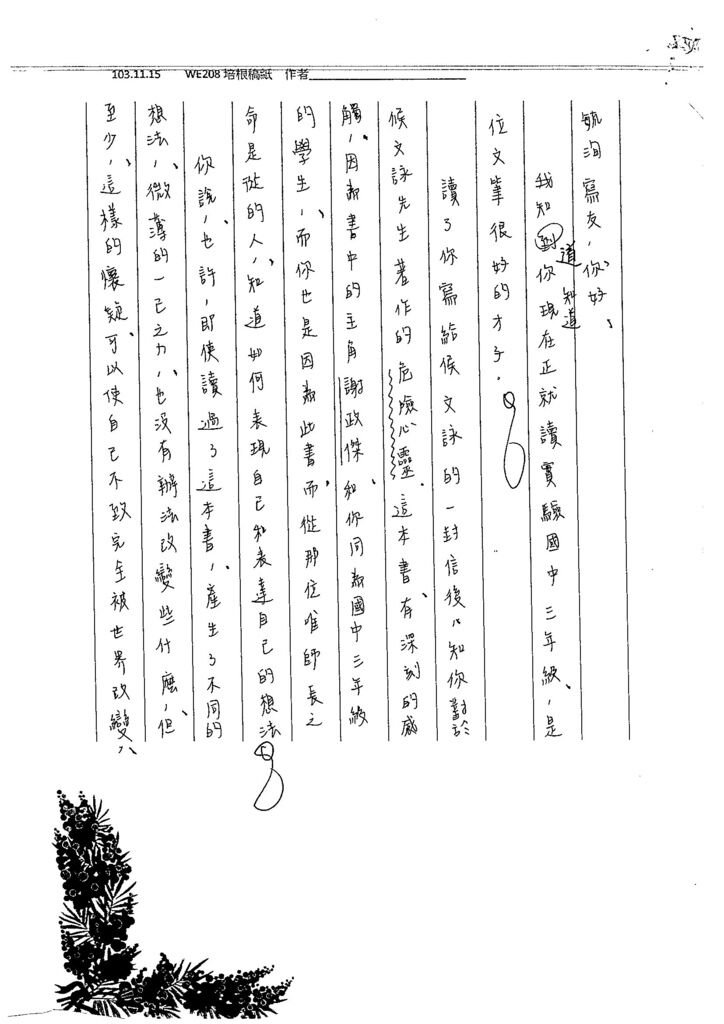 103.11.15 WE208 培根稿紙 作者
毓洵寫友，你好，
我知到你現在正就讀實驗國中三年級，是
道
知道
位文筆很好的才子。
讀了你寫給侯文詠的一封信後，知你對於
候文詠先生著作的危險心靈這本書有深刻的感
觸，因為書中的主角謝政傑和你同為國中三年級
的學生，而你也是因為此書而從那位唯師長之
命是從的人，知道如何表現自己和表達自己的想法
你說，也許，即使讀過了這本書，產生了不同的
想法，微薄的一己之力，也沒有辦法改變些什麼，但
至少，這樣的懷疑可以使自己不致完全被世界改變，